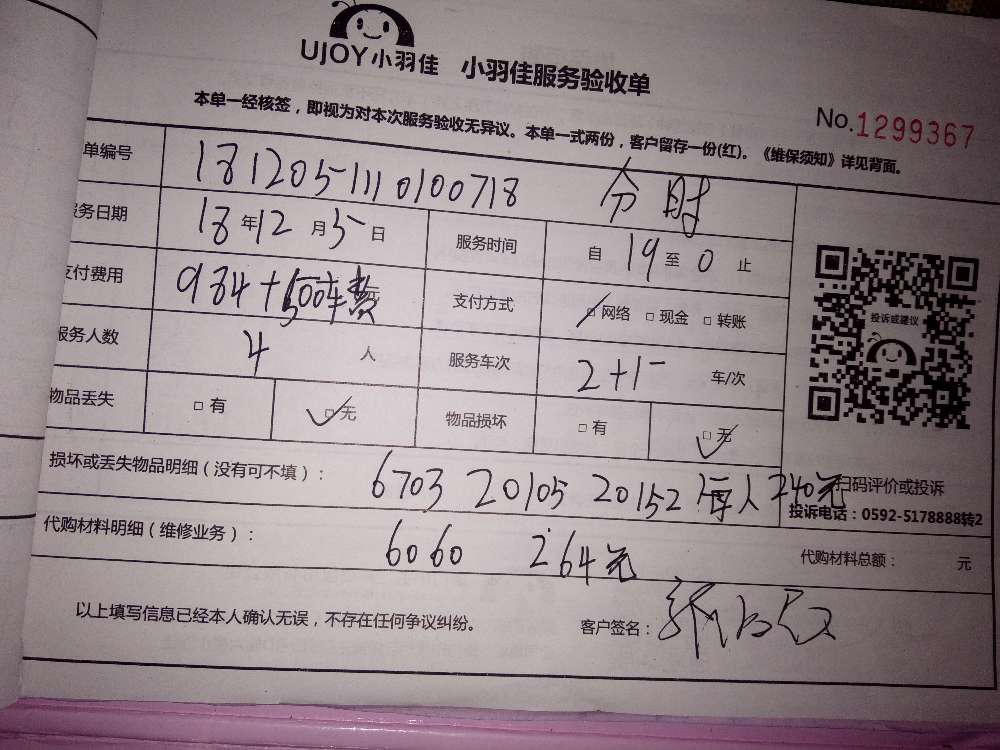 UJOY小羽佳 小羽佳服务验收单
No.1299367
本单一经核签，即视为对本次服务验收无异议。本单一式两份，客户留存一份(红)。《维保须知》详见背面。
单编号 1812051110100718 分时
务日期 18年12月5日 服务时间 自19至0止
支付费用 984+500车费 元 支付方式 □网络 □现金 □转账
服务人数 4人 服务车次 2+1 车/次
物品丢失 □有 □无 物品损坏 □有 □无
投诉或建议
损坏或丢失物品明细（没有可不填）： 6703 20105 20152 每人240元
扫码评价或投诉
投诉电话：0592-5178888转2
代购材料明细（维修业务）： 6060 264元 代购材料总额： 元
以上填写信息已经本人确认无误，不存在任何争议纠纷。 客户签名：